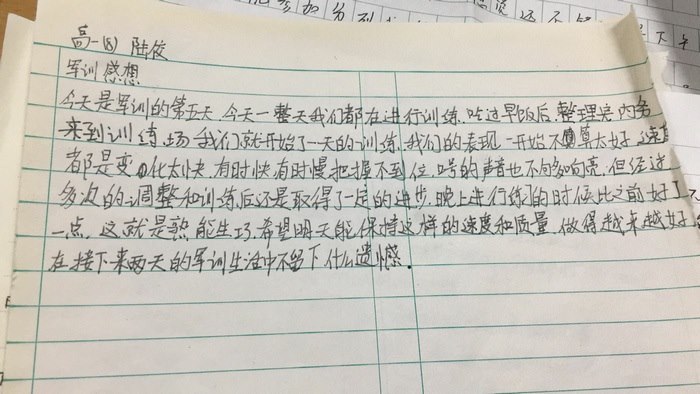 高一(8) 陆佼
军训感想
今天是军训的第五天,今天一整天我们都在进行训练,吃过早饭后,整理完内务
来到训练场,我们就开始了一天的训练,我们的表现一开始不算太好,速度
都是变化太快,有时快,有时慢把握不到位,口号的声音也不够响亮,但经过
多次的调整和训练后还是取得了一定的进步,晚上进行练习的时候比之前好了
一点,这就是熟能生巧,希望明天能保障这样的速度和质量,做得越来越好,
在接下来两天的军训生涯中不留下什么遗憾。